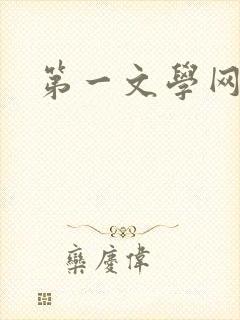 第一文學网
欒慶偉